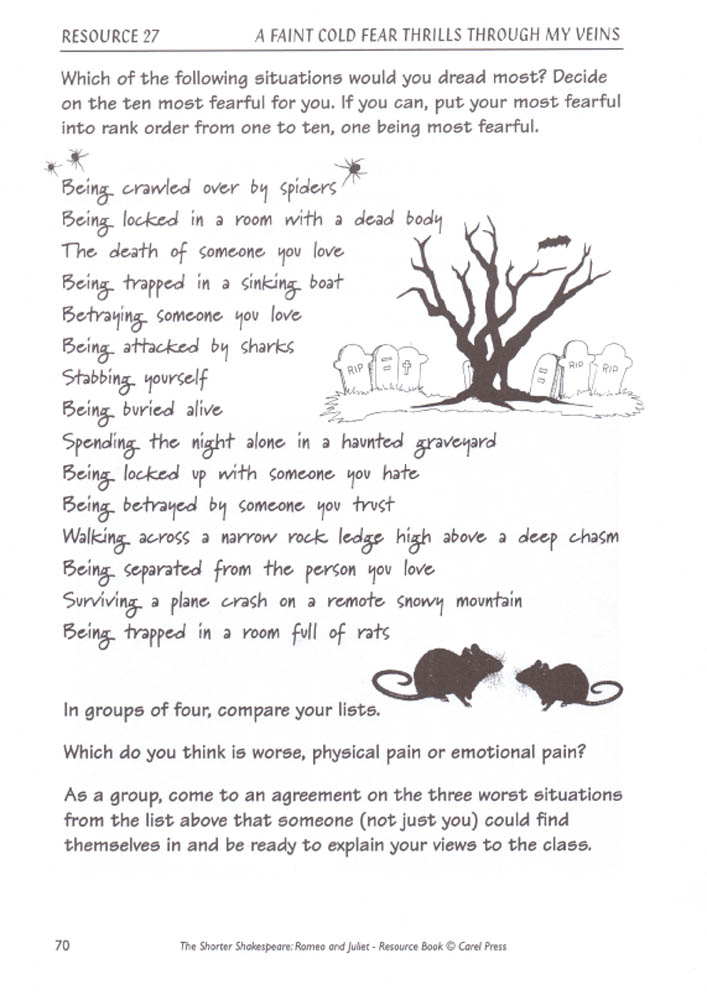 RESOURCE 27 A FAINT COLD FEAR THRILLS THROUGH MY VEINS
Which of the following situations would you dread most? Decide
on the ten most fearful for you. If you can, put your most fearful
into rank order from one to ten, one being most fearful.
Being crawled over by spiders
Being locked in a room with a dead body
The death of someone you love
Being trapped in a sinking boat
Betraying someone you love
Being attacked by sharks
RIP
RIP
RIP
Stabbing yourself
Being buried alive
Spending the night alone in a haunted graveyard
Being locked up with someone you hate
Being betrayed by someone you trust
Walking across a narrow rock ledge high above a deep chasm
Being separated from the person you love
Surviving a plane crash on a remote snowy mountain
Being trapped in a room full of rats
In groups of four, compare your lists.
Which do you think is worse, physical pain or emotional pain?
As a group, come to an agreement on the three worst situations
from the list above that someone (not just you) could find
themselves in and be ready to explain your views to the class.
70 The Shorter Shakespeare: Romeo and Juliet - Resource Book © Carel Press